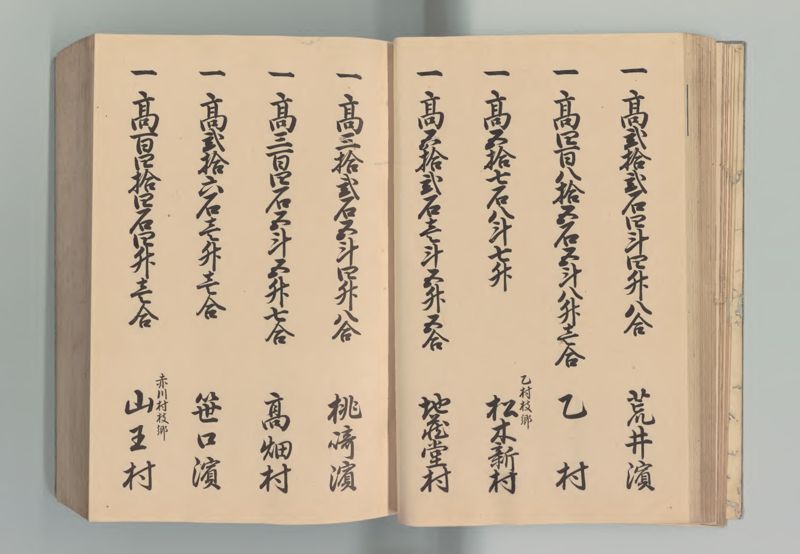 一 高弐拾弐石四斗四升八合 荒井濱
一 高四百八拾五石五斗八升壱合 乙村
一 高五拾七石八斗七升 乙村枝郷 松木新村
一 高五拾弐石壱斗五升五合 地蔵堂村
一 高三拾弐石五斗四升八合 桃崎濱
一 高三百四石五斗五升七合 高畑村
一 高弐拾六石壱升壱合 笹口濱
一 高百四拾四石四升壱合 赤川村枝郷 山王村